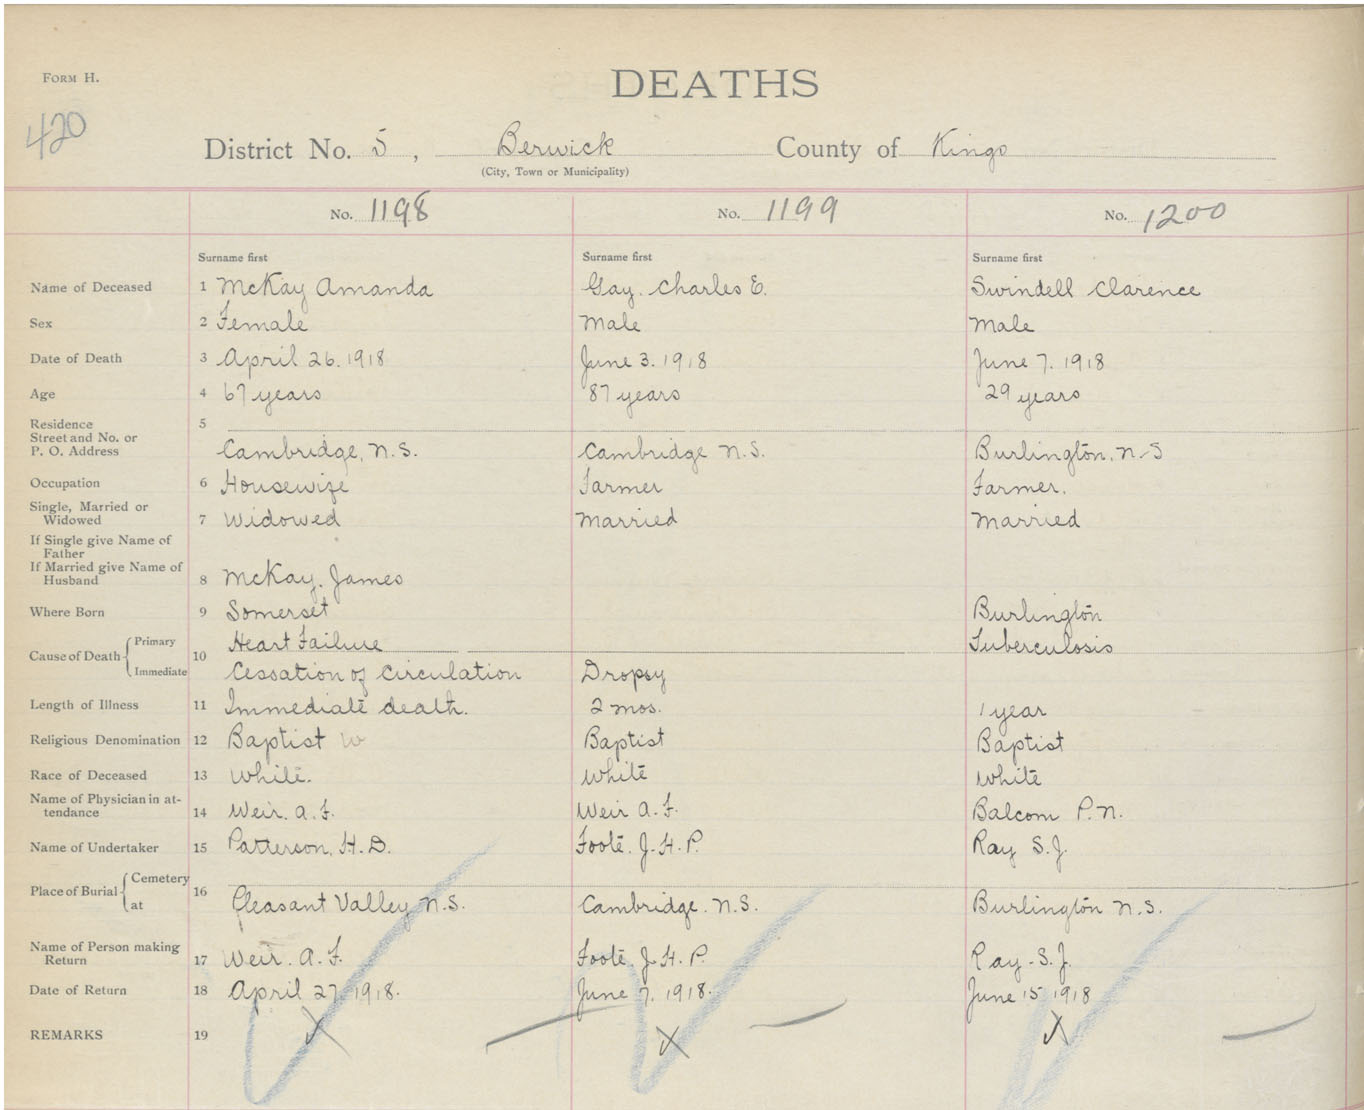 FORM H.
DEATHS
420
District No. 5, Berwick County of Kings
(City, Town or Municipality)
No. 1198 No. 1199 No. 1200
Surname first Surname first Surname first
Name of Deceased 1 McKay Amanda Gay. Charles E. Swindell Clarence
Sex 2 Female Male Male
Date of Death 3 April 26. 1918 June 3. 1918 June 7. 1918
Age 4 67 years 87 years 29 years
Residence 5
Street and No. or
P. O. Address Cambridge, N.S. Cambridge N.S. Burlington, N.S
Occupation 6 Housewife Farmer Farmer.
Single, Married or
Widowed 7 Widowed Married Married
If Single give Name of
Father
If Married give Name of
Husband 8 McKay. James
Where Born 9 Somerset Burlington
Cause of Death 10 Primary Heart Failure Tuberculosis
Immediate Cessation of circulation Dropsy
Length of Illness 11 Immediate death. 2 mos. 1 year
Religious Denomination 12 Baptist W Baptist Baptist
Race of Deceased 13 White. White White
Name of Physician in at-
tendance 14 Weir. A. F. Weir A. F. Balcom P. N.
Name of Undertaker 15 Patterson, H. D. Foote. J. H. P. Ray S. J.
Place of Burial 16 Cemetery
at Pleasant Valley N.S. Cambridge. N.S. Burlington N.S.
Name of Person making
Return 17 Weir. A. F. Foote. J. H. P. Ray. S. J.
Date of Return 18 April 27. 1918. June 7. 1918. June 15 1918
REMARKS 19 X X X